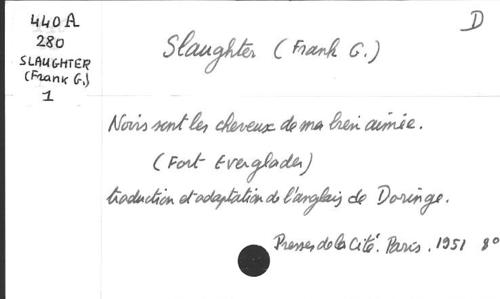 440A
280
SLAUGHTER
(Frank G.)
1
D
Slaughter (Frank G.)
Noirs sont les cheveux de ma bien aimée.
(Fort Everglades)
traduction et adaptation de l'anglais de Doringe.
Presses de la Cité. Paris. 1951 8°